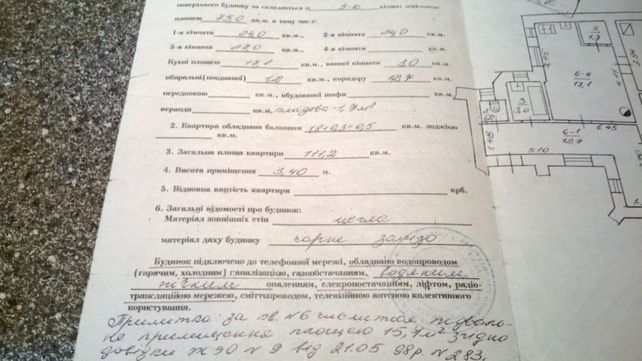 поверхового будинку та складається з 3-ох кімнат житловою
площею 75,0 кв.м, в тому числі:
1-а кімната 24,0 кв.м., 2-а кімната 24,0 кв.м.
3-я кімната 27,0 кв.м., 4-а кімната кв.м.
Кухні площею 17,1 кв.м., ванної кімнати 3,0 кв.м.
вбиральні (поєднаної) 1,2 кв.м., коридору 12,7 кв.м.
передпокою кв.м., вбудованої шафи кв.м.,
веранди кв.м. кладова - 1,7 м²
2. Квартира обладнана балконом 1,8×0,3-0,5 кв.м. лоджією
кв.м.
3. Загальна площа квартири 111,2 кв.м.
4. Висота приміщення 3,40 м.
5. Відновна вартість квартири крб.
6. Загальні відомості про будинок:
Матеріал зовнішніх стін цегла
матеріал даху будинку чорне залізо
Будинок підключено до телефонної мережі, обладнано водопроводом
(гарячим, холодним) каналізацією, газопостачанням, водяним
пічним опаленням, електропостачанням, ліфтом, радіо-
трансляційною мережею, сміттєпроводом, телевізійною антеною колективного
користування.
Примітка: за кв. №6 числиться підваль-
не приміщення площею 15,7 м² згідно
довідки ЖЭО №9 від 21.05.98р. №283.
5
1,7
6-4
17,1
3
3,0
6-1
12,7
6.45
5.10
2.45